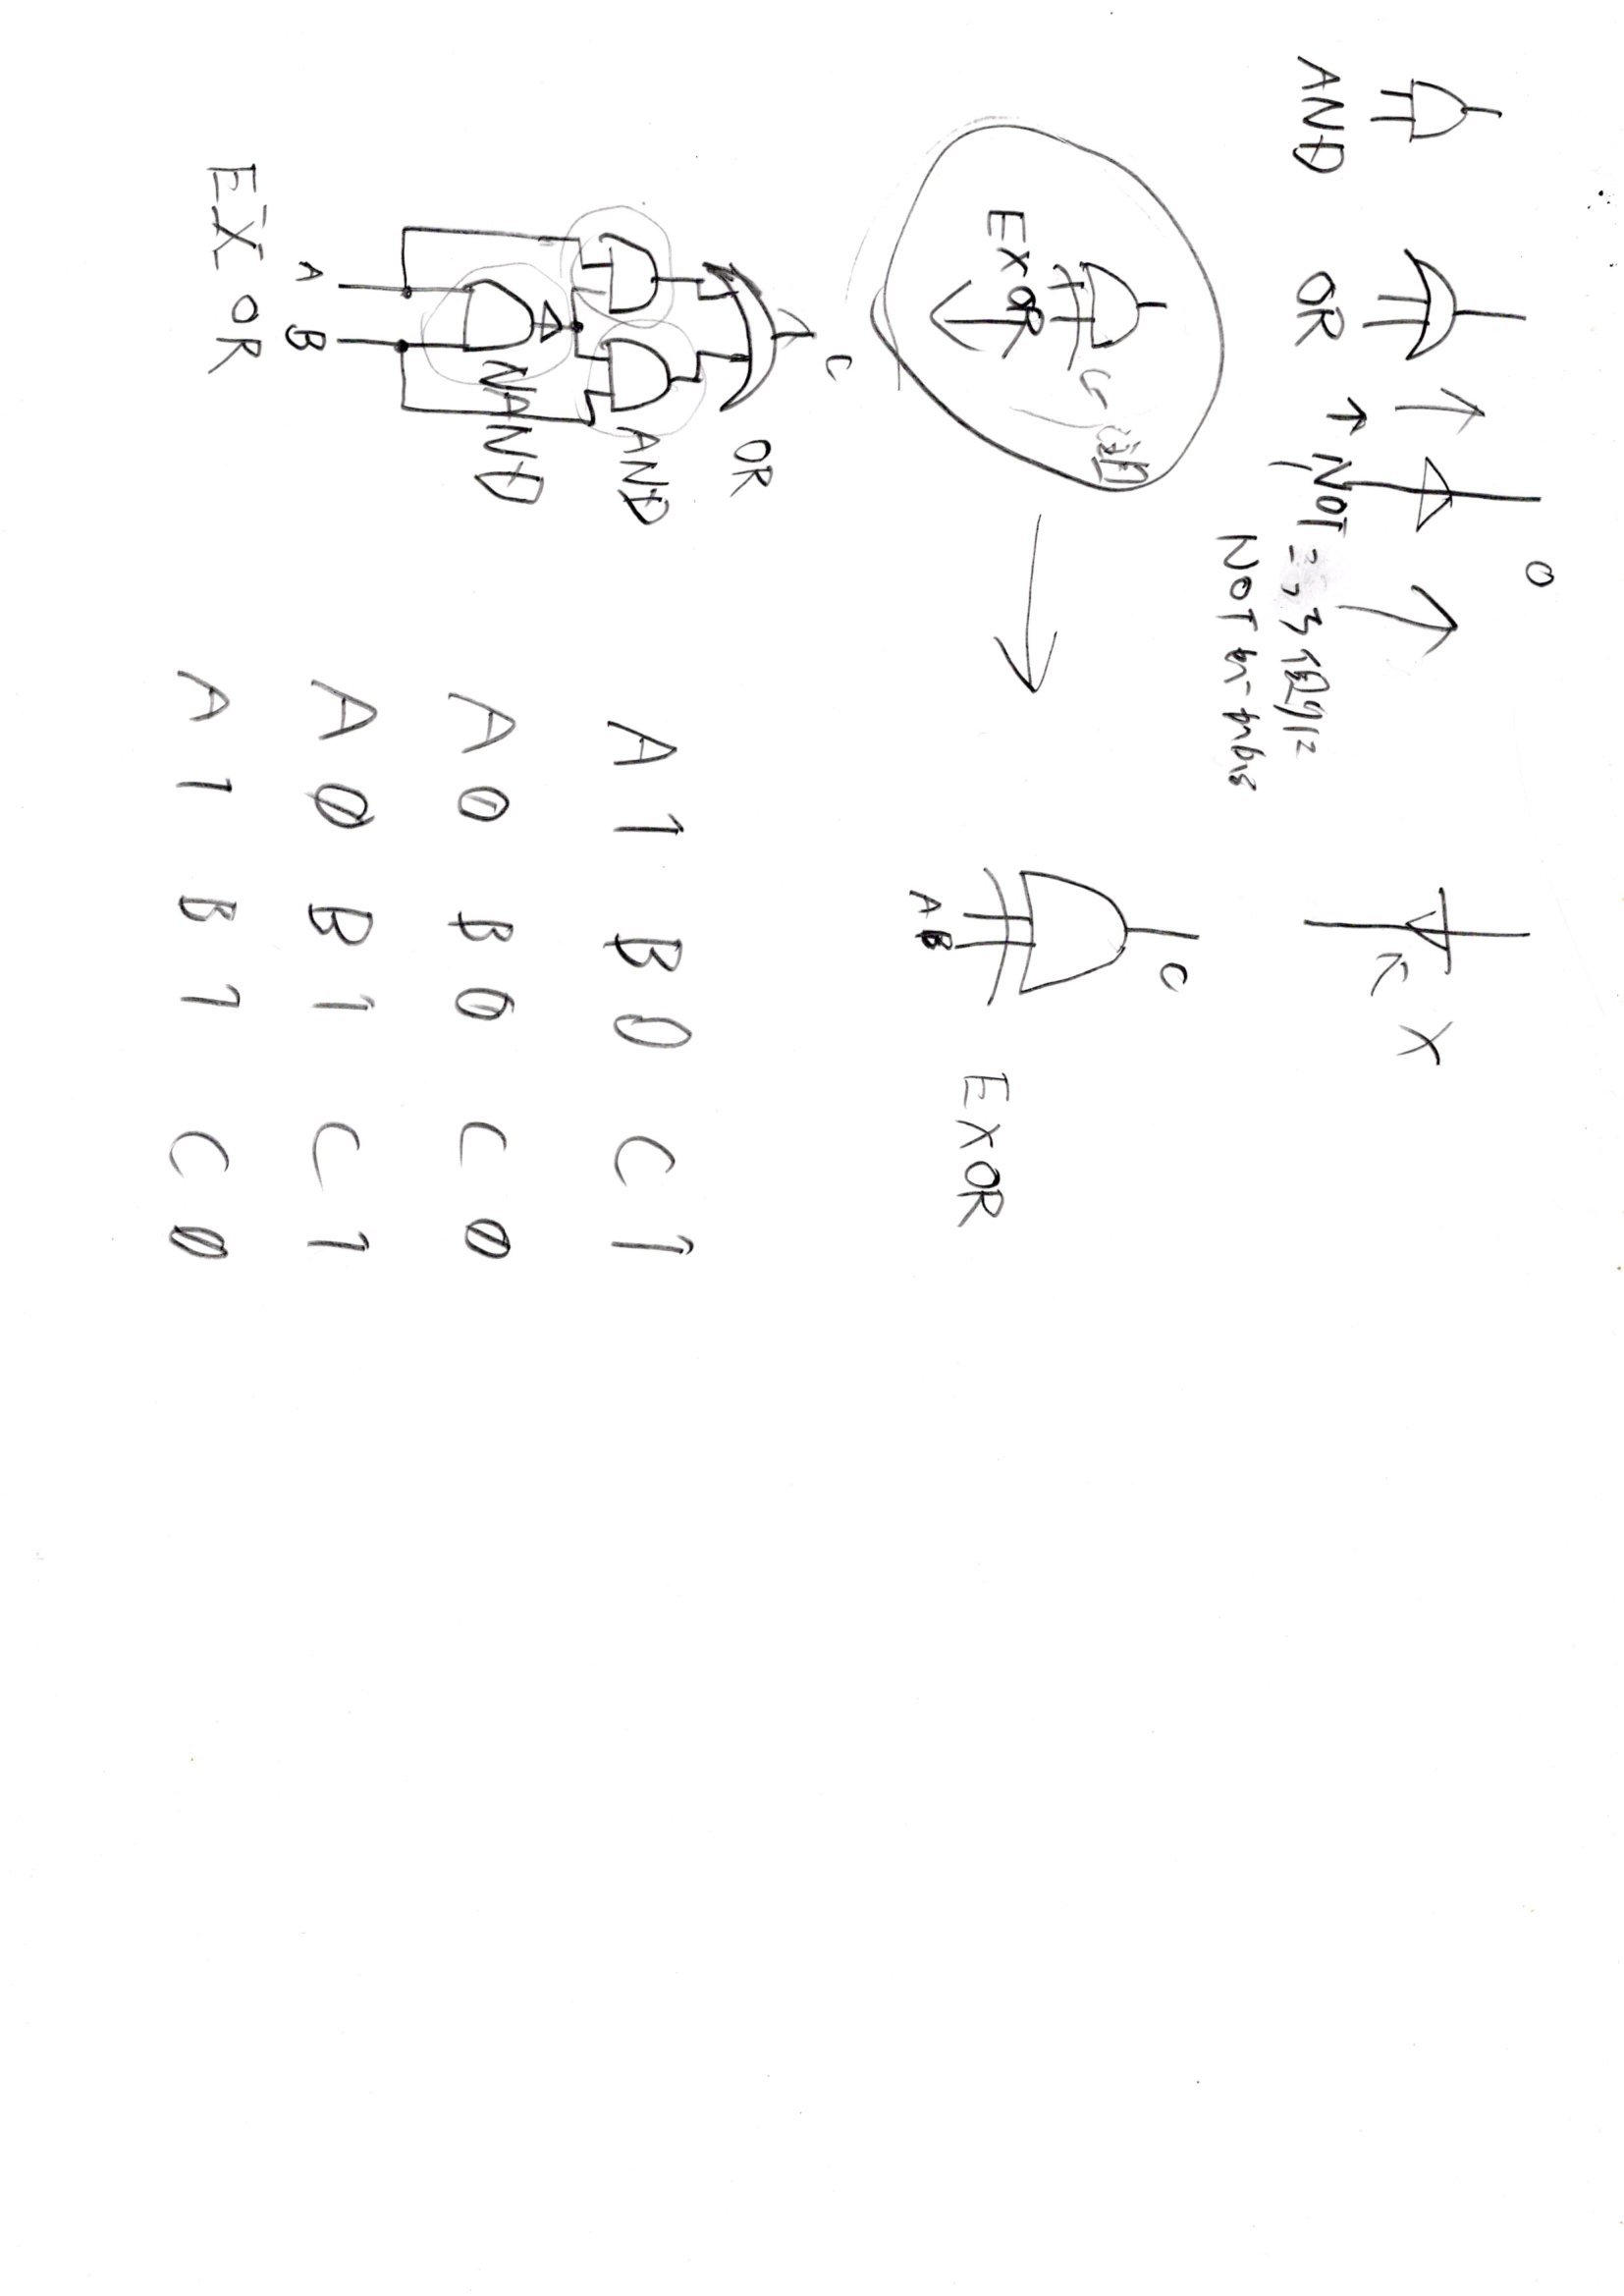 O
X
AND OR ↑ NOT こっち側に
NOT がかかる
C
EXOR
EXOR
A B
C
OR
AND
NAND
A B
EXOR
A 1 B 0 C 1
A 0 B 0 C 0
A 0 B 1 C 1
A 1 B 1 C 0